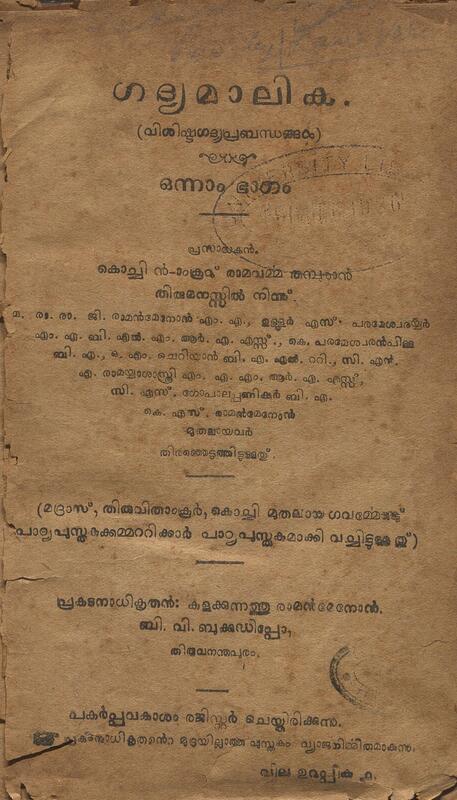 ഗദ്യമാലിക.
(വിശിഷ്ടഗദ്യപ്രബന്ധങ്ങൾ)
ഒന്നാം ഭാഗം
പ്രസാധകൻ.
കൊച്ചി ൻ-ാംകൂറ് രാമവർമ്മ തമ്പുരാൻ
തിരുമനസ്സിൽ നിന്നു്.
മ. രാ. രാ. ജി. രാമൻമേനോൻ എം. എ., ഉള്ളൂർ എസ്. പരമേശ്വരയ്യർ
എം. എ. ബി. എൽ. എം. ആർ. എ. എസ്സ്., കെ. പരമേശ്വരൻപിള്ള
ബി. എ., കെ. എം. ചെറിയാൻ ബി. എ. എൽ. ററി., സി. എൻ.
എ. രാമയ്യാശാസ്ത്രി എം. എ. എം. ആർ. എ. എസ്സ്,
സി. എസ്. ഗോപാലപ്പണിക്കർ ബി. എ.
കെ. എസ്. രാമൻമേനോൻ
മുതലായവർ
തിരഞ്ഞെടുത്തിട്ടുള്ളതു്.
(മദ്രാസ്, തിരുവിതാംകൂർ, കൊച്ചി മുതലായ ഗവർമ്മേണ്ടു്
പാഠ്യപുസ്തകക്കമ്മററിക്കാർ പാഠ്യപുസ്തകമാക്കി വച്ചിട്ടുള്ളതു്)
പ്രകടനാധികൃതൻ: കുളക്കുന്നത്തു രാമൻമേനോൻ.
ബി. വി. ബുക്കുഡിപ്പോ,
തിരുവനന്തപുരം.
പകർപ്പവകാശം രജിസ്റ്റർ ചെയ്തിരിക്കുന്നു.
പ്രകടനാധികൃതന്റെ മുദ്രയില്ലാത്ത പുസ്തകം വ്യാജനിർമ്മിതമാകുന്നു.
വില ഉറുപ്പിക ൧.